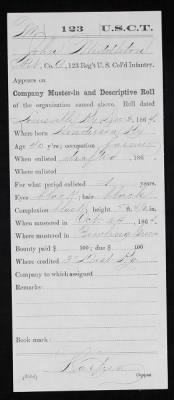 M 123 U.S.C.T.
John Middleton
Pvt., Co. A, 123 Reg't U. S. Col'd Infantry.
Appears on
Company Muster-in and Descriptive Roll
of the organization named above. Roll dated
Louisville Ky, 186
Where born Henderson Ky
Age 40 y'rs; occupation farmer
When enlisted drafted, 186
Where enlisted
For what period enlisted 1 years.
Eyes black; hair black
Complexion black; height 5 ft. in.
When mustered in Oct 24, 1864
Where mustered in Bowling Green
Bounty paid $ 100; due $ 100
Where credited 2 Dist Ky
Company to which assigned
Remarks:
Book mark:
Copyist.